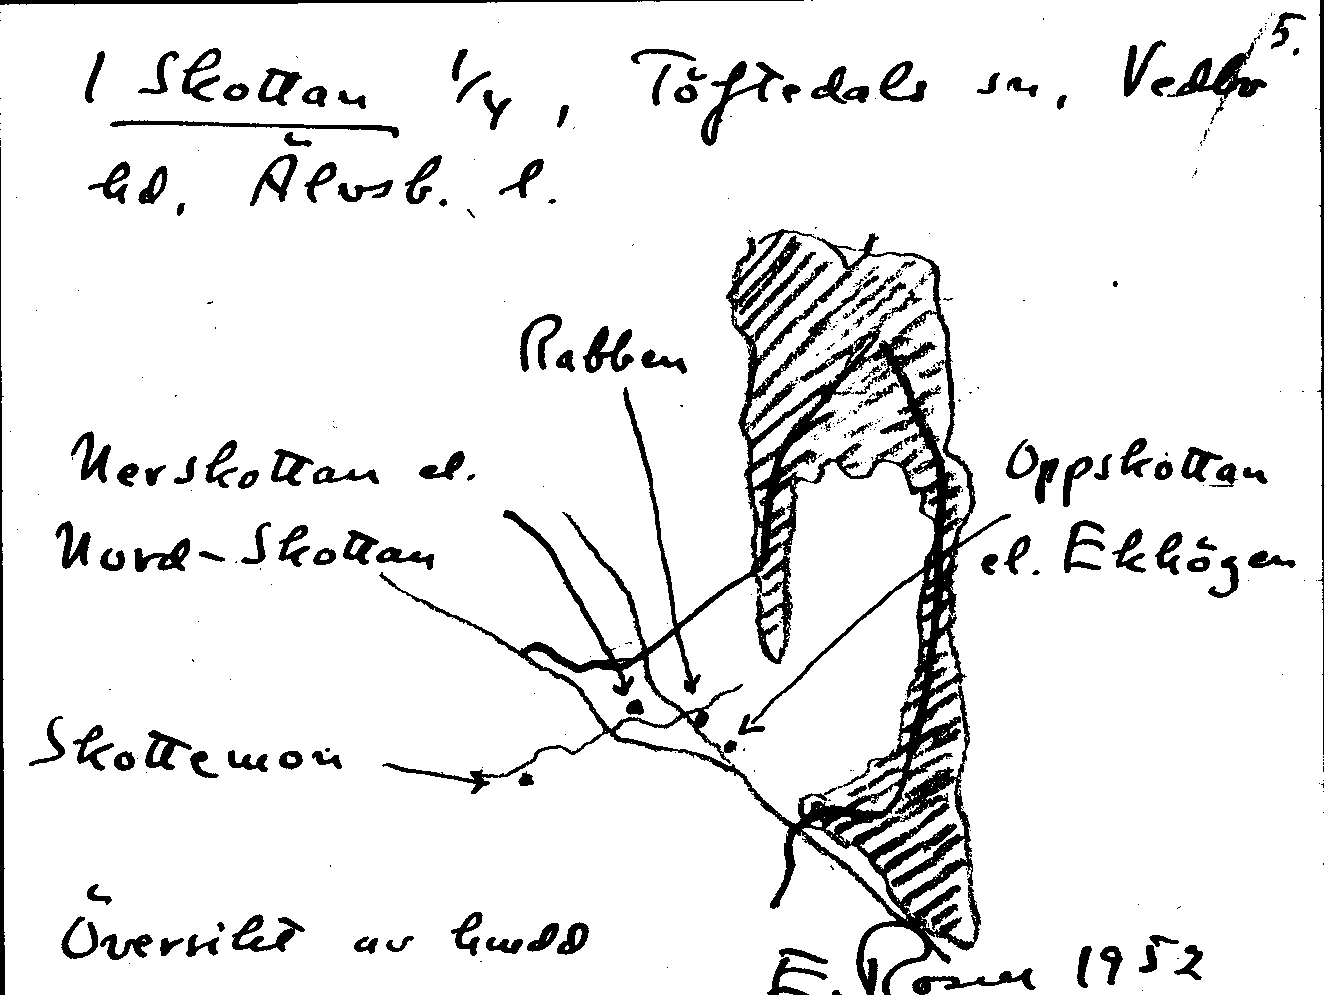 5.
1 Skottan 1/4, Töftedals sn, Vedbo
hd, Älvsb. l.
Rabben
Nerskottan el.
Nord-Skottan
Oppskottan
el. Ekhögen
Skottemon
Översikt av
E. Rosell 1952